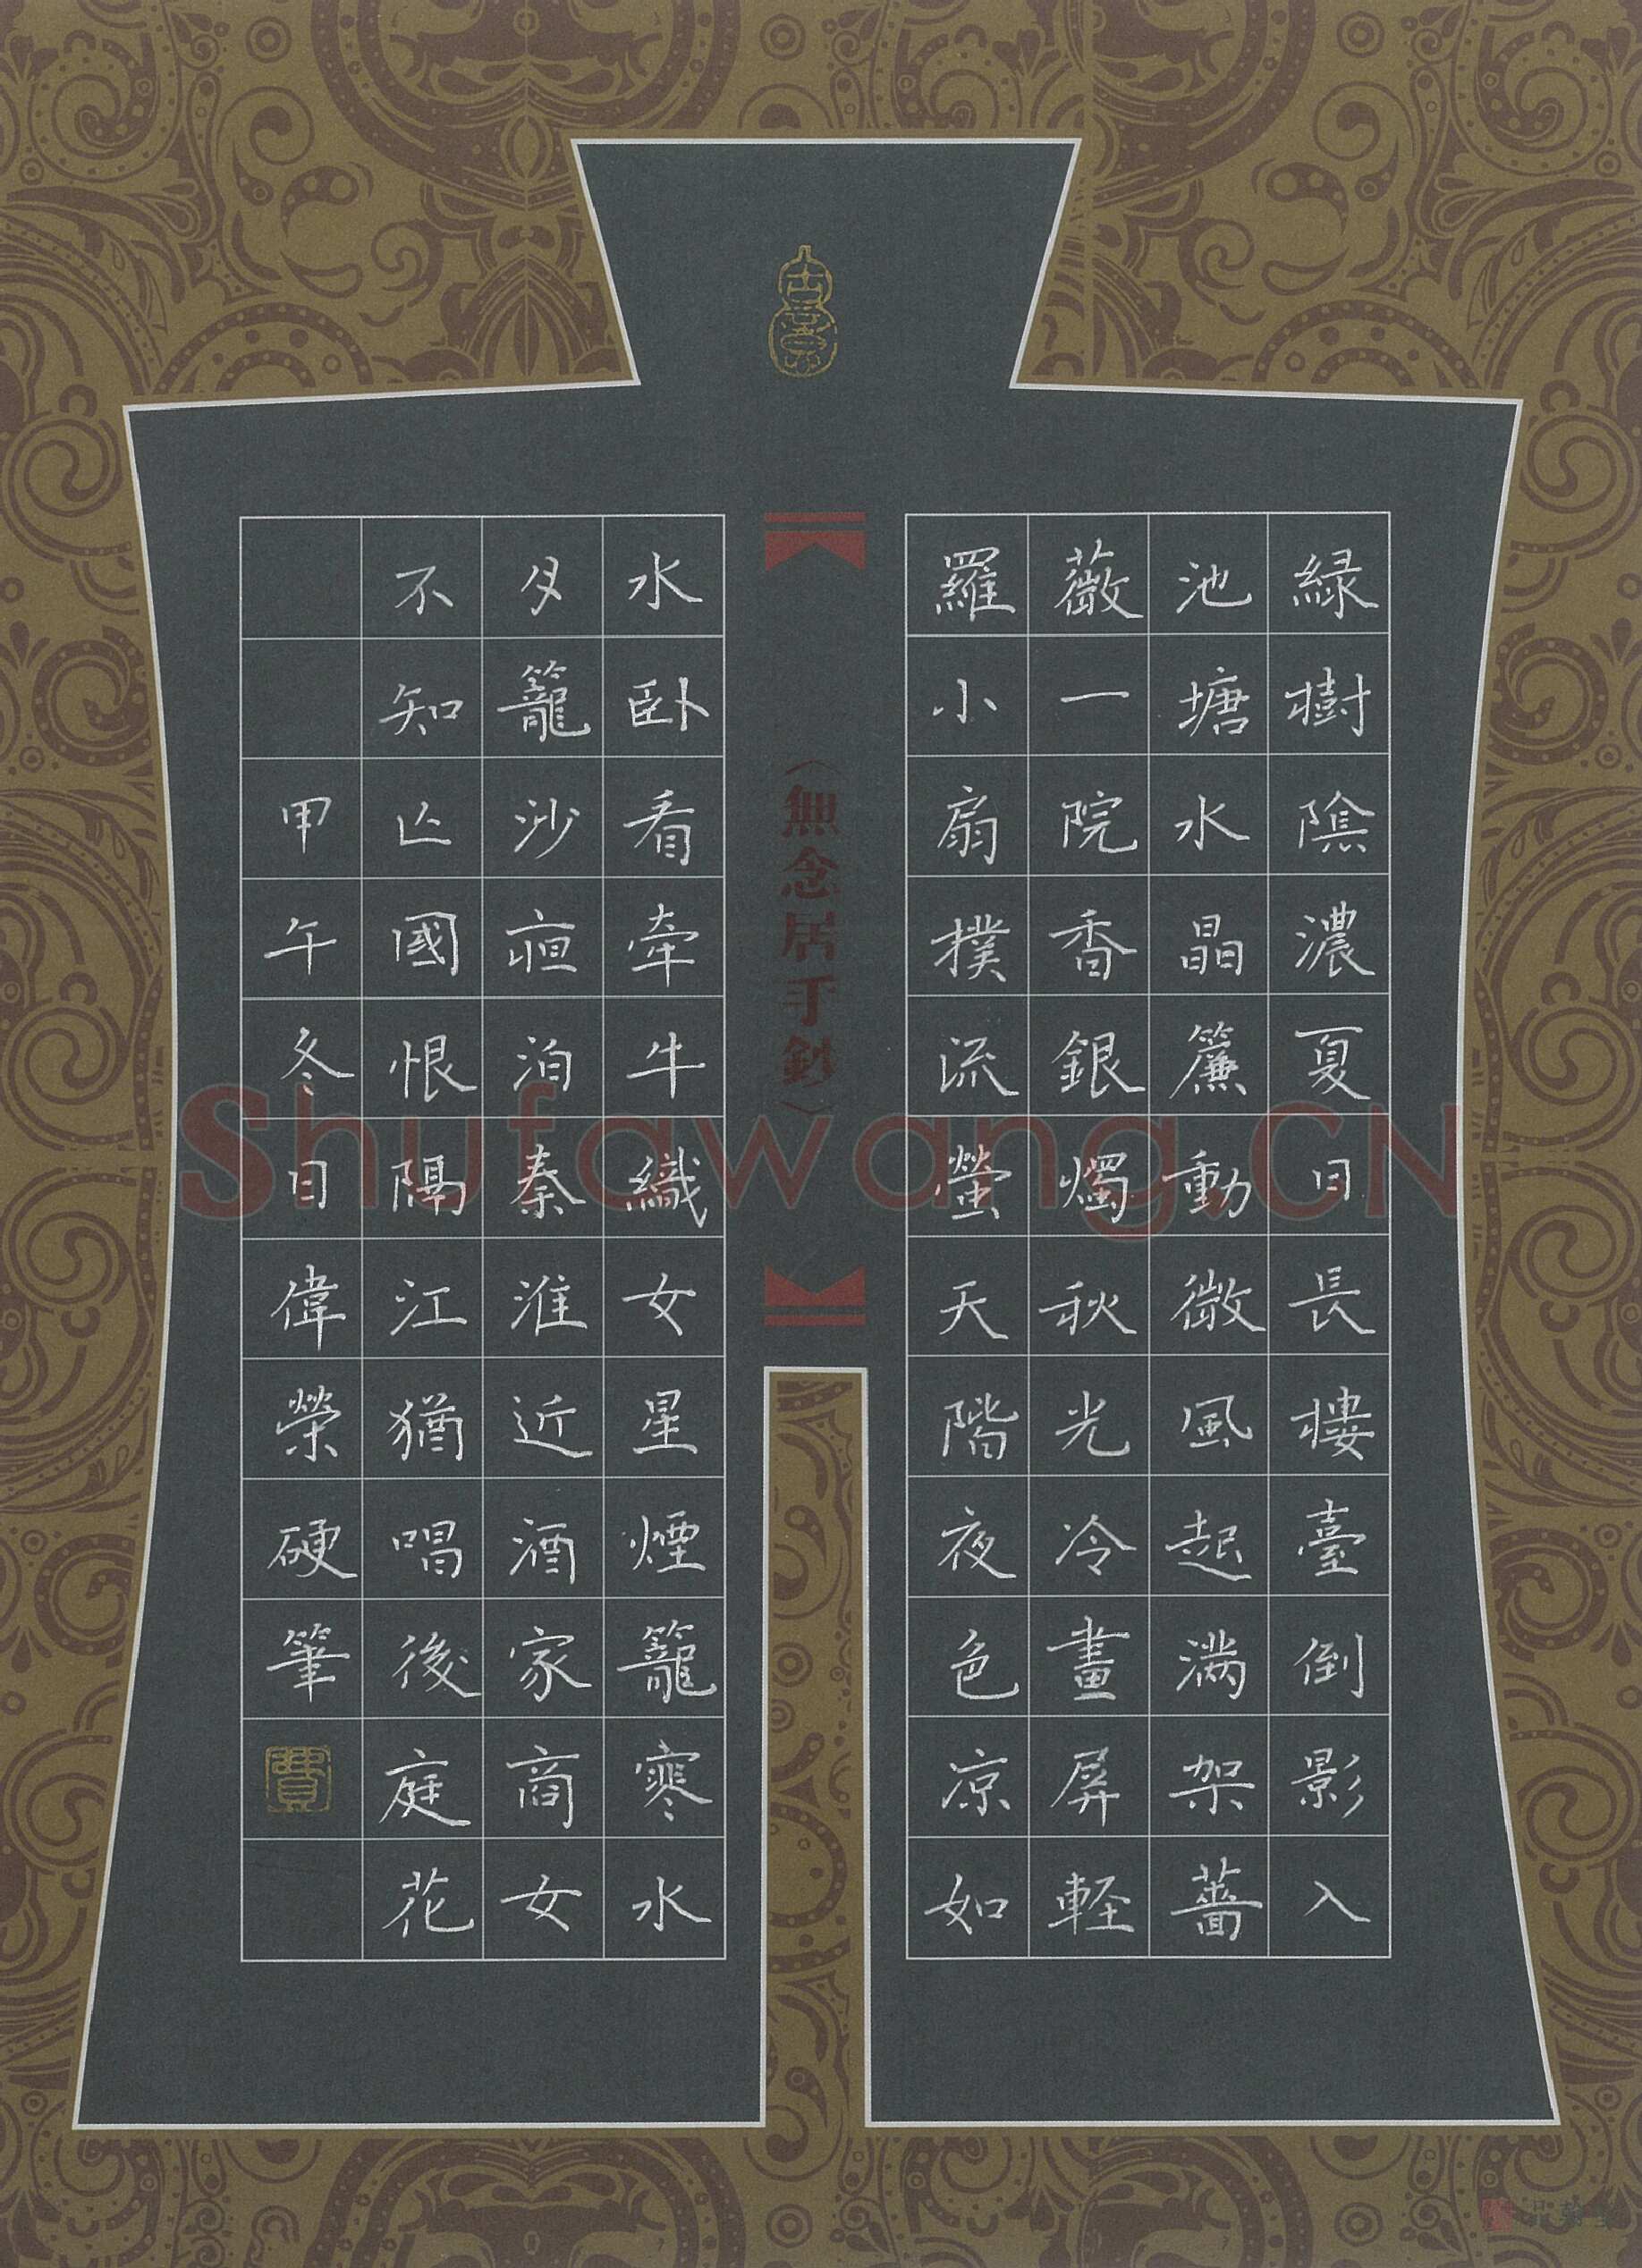 綠樹陰濃夏日長樓臺倒影入
池塘水晶簾動微風起滿架薔
薇一院香銀燭秋光冷畫屏輕
羅小扇撲流螢天階夜色涼如
水臥看牽牛織女星煙籠寒水
月籠沙夜泊秦淮近酒家商女
不知亡國恨隔江猶唱後庭花
甲午冬日偉榮硬筆
〈無念居手鈔〉
Shufawang.CN